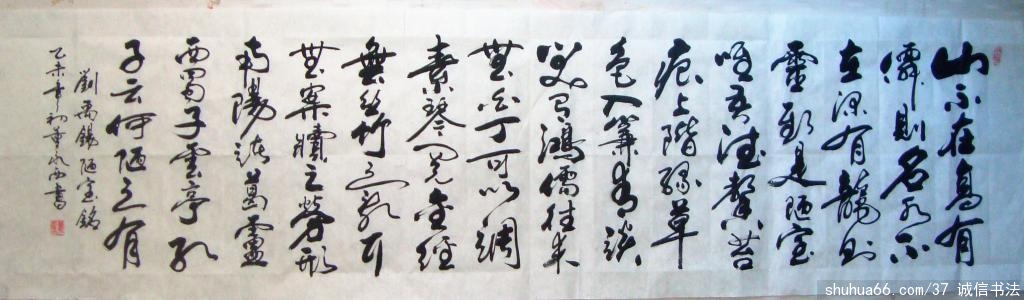 山不在高有
僊則名水不
在深有龍則
靈斯是陋室
唯吾德馨苔
痕上階綠草
色入簾青談
笑有鴻儒往来
無白丁可以調
素琴閱金經
無絲竹之亂耳
無案牘之勞形
南陽諸葛廬
西蜀子雲亭孔
子云何陋之有
劉禹錫陋室銘
乙未年初書
shuhua66.com/37 诚信书法